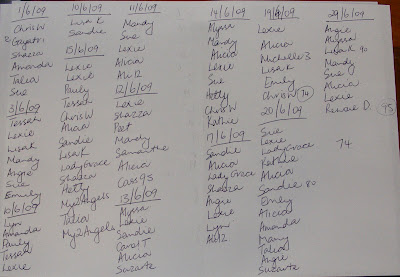 1/6/09
Chris W
Gayatri
Shazza
Amanda
Talia
Sue
3/6/09
Tessah
Lexie
Lisa K
Mandy
Angie
Sue
Emily
10/6/09
Lyn
Amanda
Pauly
Tessah
Lexie
10/6/09
Lisa K
Sandie
15/6/09
Lexie
Lexie
Pauly
Tessah
Chris W
Sandie
Lisa K
Lady Grace
Shazza
Hetty
My2Angels
Talia
My2Angels
11/6/09
Mandy
Sue
Lexie
Alicia
Ali12
12/6/09
Lexie
Shazza
Peet
Mandy
Samantha
Alicia
Cass95
13/6/09
Alyssa
Lexie
Sandie
Carol T
Alicia
Suzarte
14/6/09
Alyssa
Mandy
Alicia
Lexie
Sue
Hetty
Chris W
Kathie
17/6/09
Sandie
Alicia
Lady Grace
Shazza
Angie
Lexie
Lyn
Ali12
19/6/09
Lexie
Alicia
Nichollei3
Lisa K
Emily
Chris W 74
20/6/09
Sue
Lexie
Lady Grace
Kathie
Alicia
Sandie 80
Emily
Alicia
Amanda
Mandy
Talia
Angie
Suzarte
29/6/09
Angie
Alyssa
Lisa K 90
Mandy
Sue
Alicia
Lexie
Renaie D. 98
74